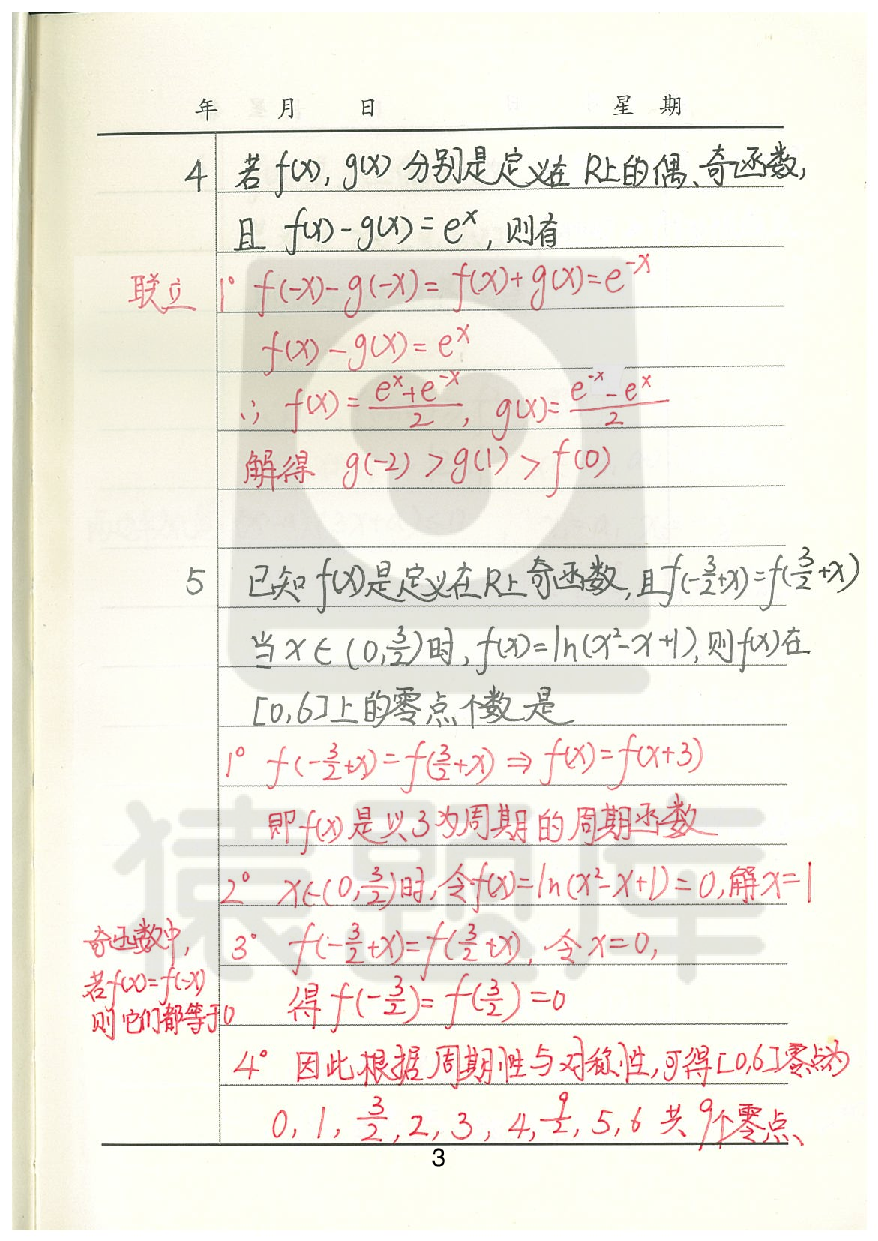 年 月 日 星 期
4 若f(x),g(x)分别是定义在R上的偶、奇函数,
且 f(x)-g(x)=eˣ,则有
联立 1° f(-x)-g(-x)=f(x)+g(x)=e⁻ˣ
f(x)-g(x)=eˣ
∴ f(x)=(eˣ+e⁻ˣ)/2, g(x)=(e⁻ˣ-eˣ)/2
解得 g(-2)>g(1)>f(0)
5 已知f(x)是定义在R上奇函数,且f(-3/2+x)=f(3/2+x)
当x∈(0,3/2)时,f(x)=ln(x²-x+1),则f(x)在
[0,6]上的零点个数是
1° f(-3/2+x)=f(3/2+x)⇒f(x)=f(x+3)
即f(x)是以3为周期的周期函数
2° x∈(0,3/2)时,令f(x)=ln(x²-x+1)=0,解x=1
3° f(-3/2+x)=f(3/2+x),令x=0,
得f(-3/2)=f(3/2)=0
奇函数中,
若f(x)=f(-x)
则它们都等于0
4° 因此根据周期性与对称性,可得[0,6]零点为
0,1,3/2,2,3,4,9/2,5,6 共9个零点、
3
猿题库